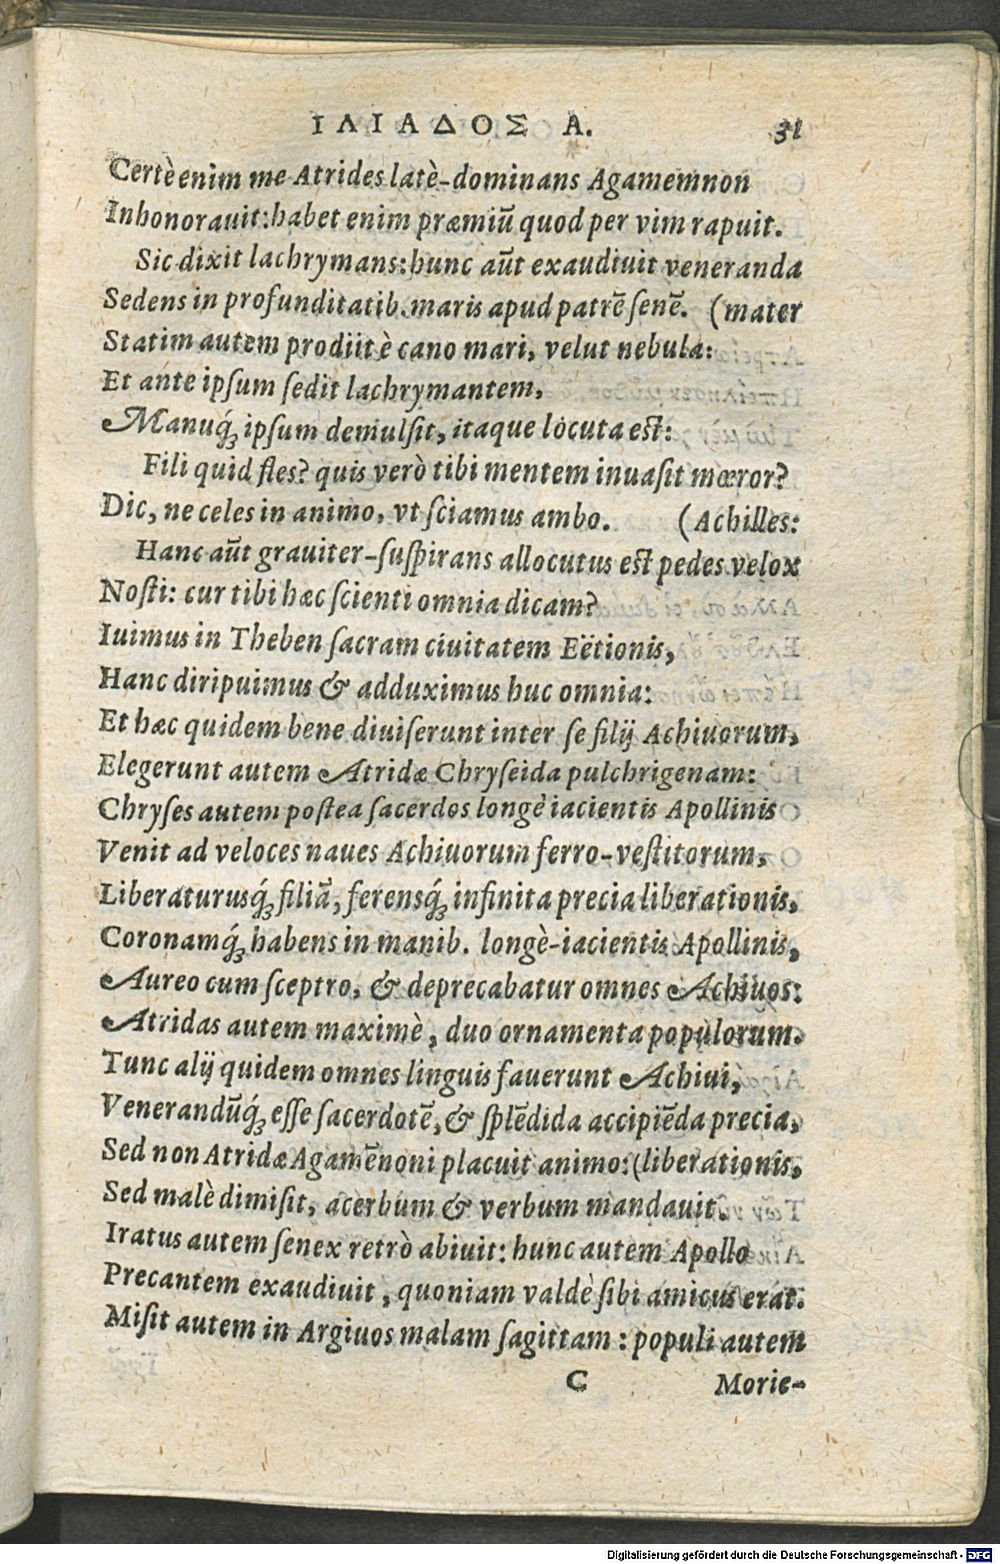 ΙΛΙΑΔΟΣ Α. 31
Certè enim me Atrides latè-dominans Agamemnon
Inhonorauit: habet enim præmiū quod per vim rapuit.
Sic dixit lachrymans: hunc aūt exaudiuit veneranda
Sedens in profunditatib. maris apud patrē senē. (mater
Statim autem prodiit è cano mari, velut nebula:
Et ante ipsum sedit lachrymantem,
Manuq́; ipsum demulsit, itaque locuta est:
Fili quid fles? quis verò tibi mentem inuasit mœror?
Dic, ne celes in animo, vt sciamus ambo. (Achilles:
Hanc aūt grauiter-suspirans allocutus est pedes velox
Nosti: cur tibi hæc scienti omnia dicam?
Iuimus in Theben sacram ciuitatem Eëtionis,
Hanc diripuimus & adduximus huc omnia:
Et hæc quidem bene diuiserunt inter se filij Achiuorum,
Elegerunt autem Atridæ Chryseida pulchrigenam:
Chryses autem postea sacerdos longè iacientis Apollinis
Venit ad veloces naues Achiuorum ferro-vestitorum,
Liberaturusq́; filiā, ferensq́; infinita precia liberationis,
Coronamq́; habens in manib. longè-iacientis Apollinis,
Aureo cum sceptro, & deprecabatur omnes Achiuos:
Atridas autem maximè, duo ornamenta populorum.
Tunc alij quidem omnes linguis fauerunt Achiui,
Venerandūq́; esse sacerdotē, & splēdida accipiēda precia,
Sed non Atridæ Agamēnoni placuit animo: (liberationis,
Sed malè dimisit, acerbum & verbum mandauit.
Iratus autem senex retrò abiuit: hunc autem Apollo
Precantem exaudiuit, quoniam valdè sibi amicus erat.
Misit autem in Argiuos malam sagittam: populi autem
C Morie-
Digitalisierung gefördert durch die Deutsche Forschungsgemeinschaft - DFG